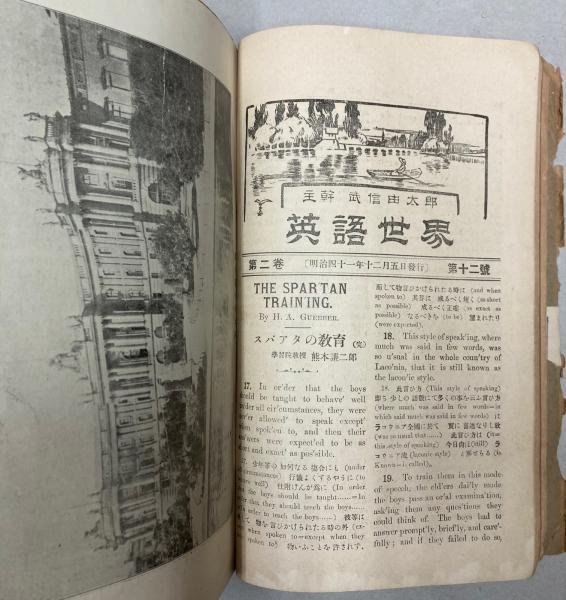 主幹 武信由太郎
英語世界
第二卷 〔明治四十一年十二月五日發行〕 第十二號
THE SPARTAN
TRAIN'ING.
By H. A. GUERBER.
スパアタの敎育 (完)
學習院敎授 熊本謙二郎
17. In or'der that the boys
should be taught to behave' well
under all cir'cumstances, they were
never allowed' to speak except'
when spok'en to, and then their
answers were expect'ed to be as
short and exact' as pos'sible.
17. 少年等の 如何なる 塲合にも (under
circumstances) 行儀よくするやうに (to
behave well) 仕附けんが爲に (In order
that the boys should be taught……=In
order that they should teach the boys……
=In order to teach the boys……) 彼等は
物を言ひかけられたる時の外 (ex-
cept when spoken to=except when they
spoken to) 物いふことを許されず、
而して物言ひかけられたる時は (and when
spoken to) 其答は 成るべく短く (as short
as possible) 成るべく正確 (as exact as
possible) なるべきを (to be) 望まれたり
(were expected).
18. This style of speak'ing, where
much was said in few words, was
so u'sual in the whole coun'try of
Laco'nia, that it is still known as
the lacon'ic style.
18. 此言ひ方 (This style of speaking)
即ち 少しの 語數にて多くの事を云ふ言ひ方
(where much was said in few words=in
which much was said in few words) は
ラコウニア全國に於て 實に普通なりし故
(was so usual that……) 此言ひ方は (it=
this style of speaking) 今日尚ほ (still) ラ
コウニア流 (laconic style) と稱せらる (is
known=is called)。
19. To train them in this mode
of speech, the eld'ers dai'ly made
the boys pass an or'al examina'tion,
ask'ing them any ques'tions they
could think of. The boys had to
answer prompt'ly, brief'ly, and care'-
fully; and if they failed to do so,